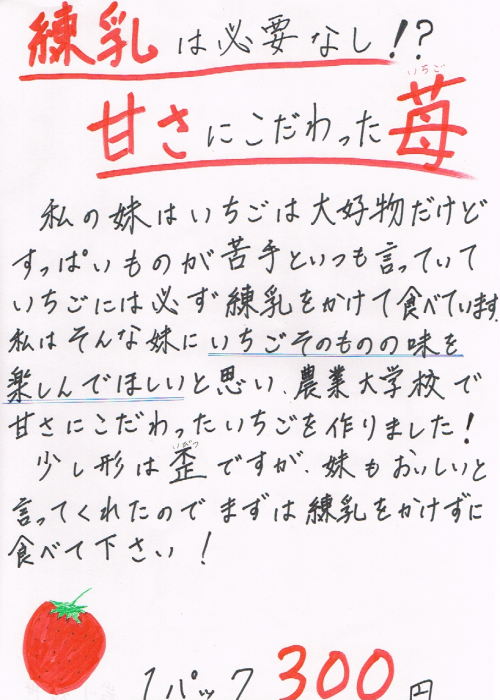 練乳は必要なし!?
いちご
甘さにこだわった苺
私の妹はいちごは大好物だけど
すっぱいものが苦手といつも言っていて
いちごには必ず練乳をかけて食べています。
私はそんな妹にいちごそのものの味を
楽しんでほしいと思い、農業大学校で
甘さにこだわったいちごを作りました!
いびつ
少し形は歪ですが、妹もおいしいと
言ってくれたのでまずは練乳をかけずに
食べて下さい!
1パック300円